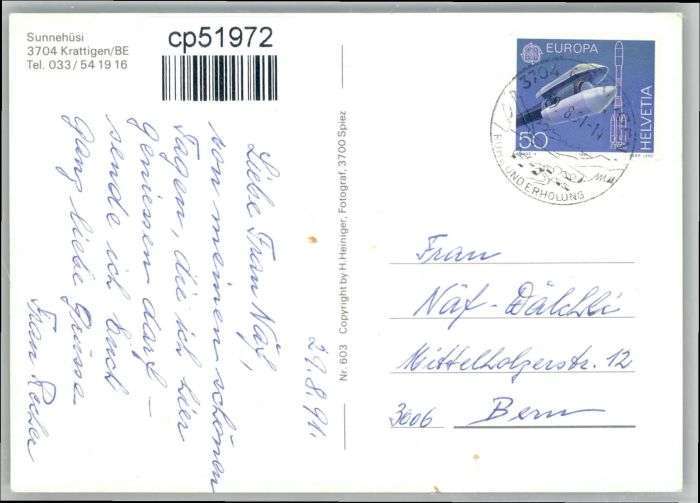 Sunnehüsi
3704 Krattigen/BE
Tel. 033/54 19 16
cp51972
Liebe Frau Näf,
von meinen schönen
Tagen, die ich hier
geniessen darf –
sende ich Euch
ganz liebe Grüsse
Frau
29.8.91.
Nr. 603 Copyright by H. Heiniger, Fotograf, 3700 Spiez
EUROPA
50
HELVETIA
3704
UND ERHOLUNG
Frau
Näf-Dälchli
Mittelholzerstr. 12
3006 Bern